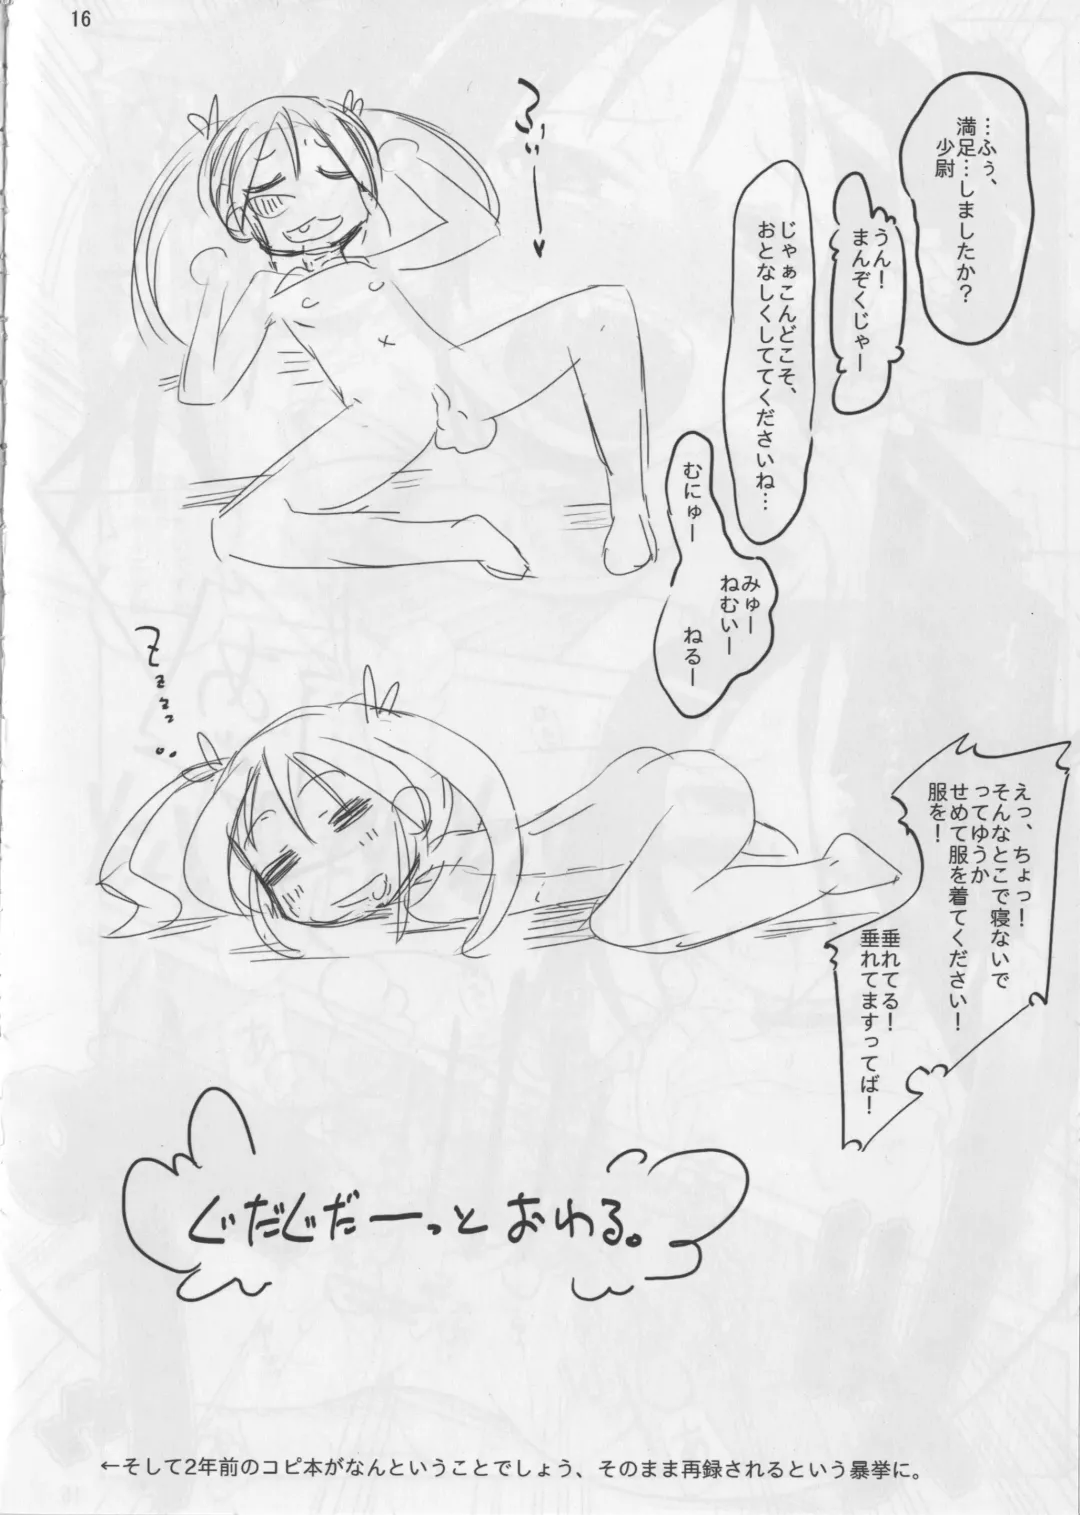 16
…ふぅ、
満足…しましたか?
少尉
うん!
まんぞくじゃー
じゃぁこんどこそ、
おとなしくしててくださいね…
ふぃぃー
むにゅー
みゅー
ねむいー
ねるー
えっ、ちょっ!
そんなとこで寝ないで
ってゆうか
せめて服を着てください!
服を!
垂れてる!
垂れてますってば!
ぐだぐだーっと おわる。
←そして2年前のコピ本がなんということでしょう、そのまま再録されるという暴挙に。